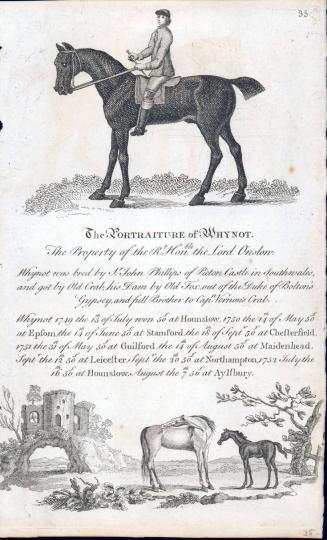 33
The PORTRAITURE of WHYNOT.
The Property of the Rt. Honble. the Lord Onslow.
Whynot was bred by Sr. John Phillips of Picton Castle in Southwales,
and got by Old Crab, his Dam by Old Fox out of the Duke of Bolton's
Gypsey, and full Brother to Capt. Vernon's Crab.
Whynot 1749 the 13 of July won 50 at Hounslow, 1750 the 24 of May 50
at Epsom, the 14 of June 50 at Stamford, the 18 of Sept. 50 at Chesterfield,
1751 the 31 of May 50 at Guilford, the 14 of August 50 at Maidenhead.
Sept. the 12 50 at Leicester, Sept. the 20 50 at Northampton, 1752 July the
16 50 at Hounslow, August the 7 50 at Aylsbury.